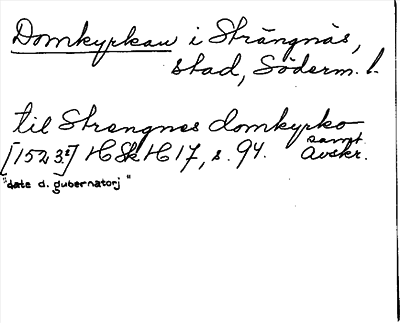 Domkyrkan i Strängnäs,
stad, Söderm. l.
til Strengnes domkyrko
[1523?] HSkH 17, s. 94. samt Avskr.
"date d. gubernatorj"